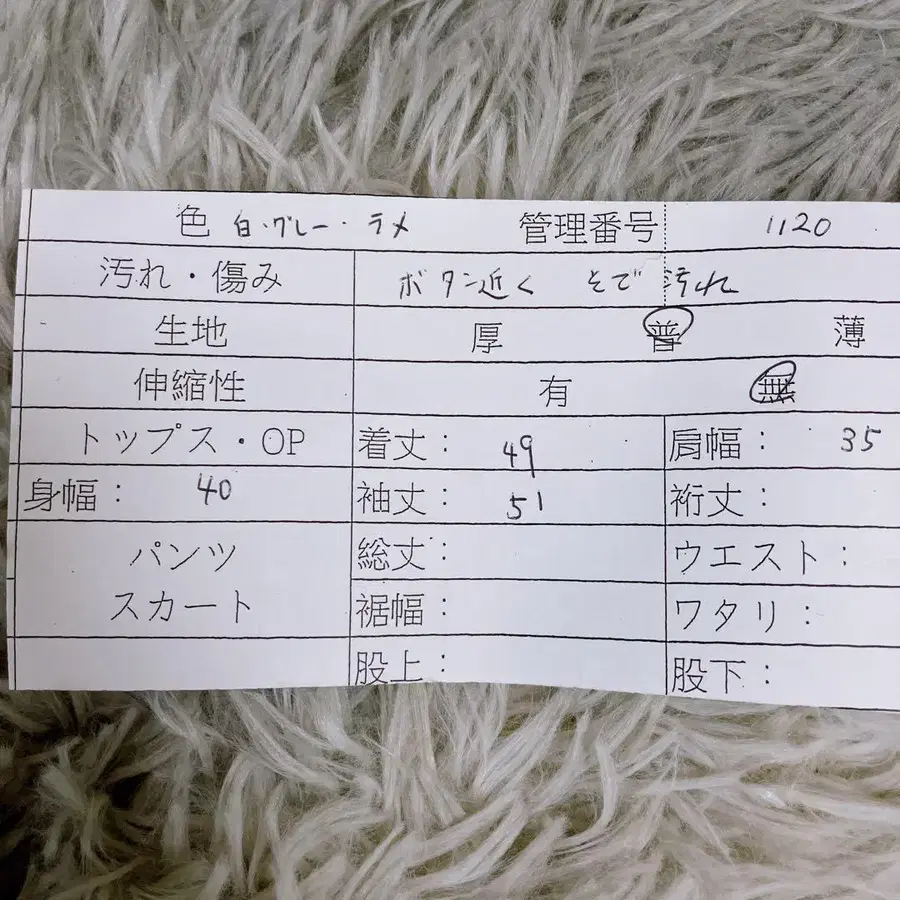 色 白・グレー・ラメ 管理番号 1120
汚れ・傷み ボタン近く そで 汚れ
生地 厚 普 薄
伸縮性 有 無
トップス・OP 着丈： 49 肩幅： 35
身幅： 40 袖丈： 51 裄丈：
パンツ 総丈： ウエスト：
スカート 裾幅： ワタリ：
股上： 股下：